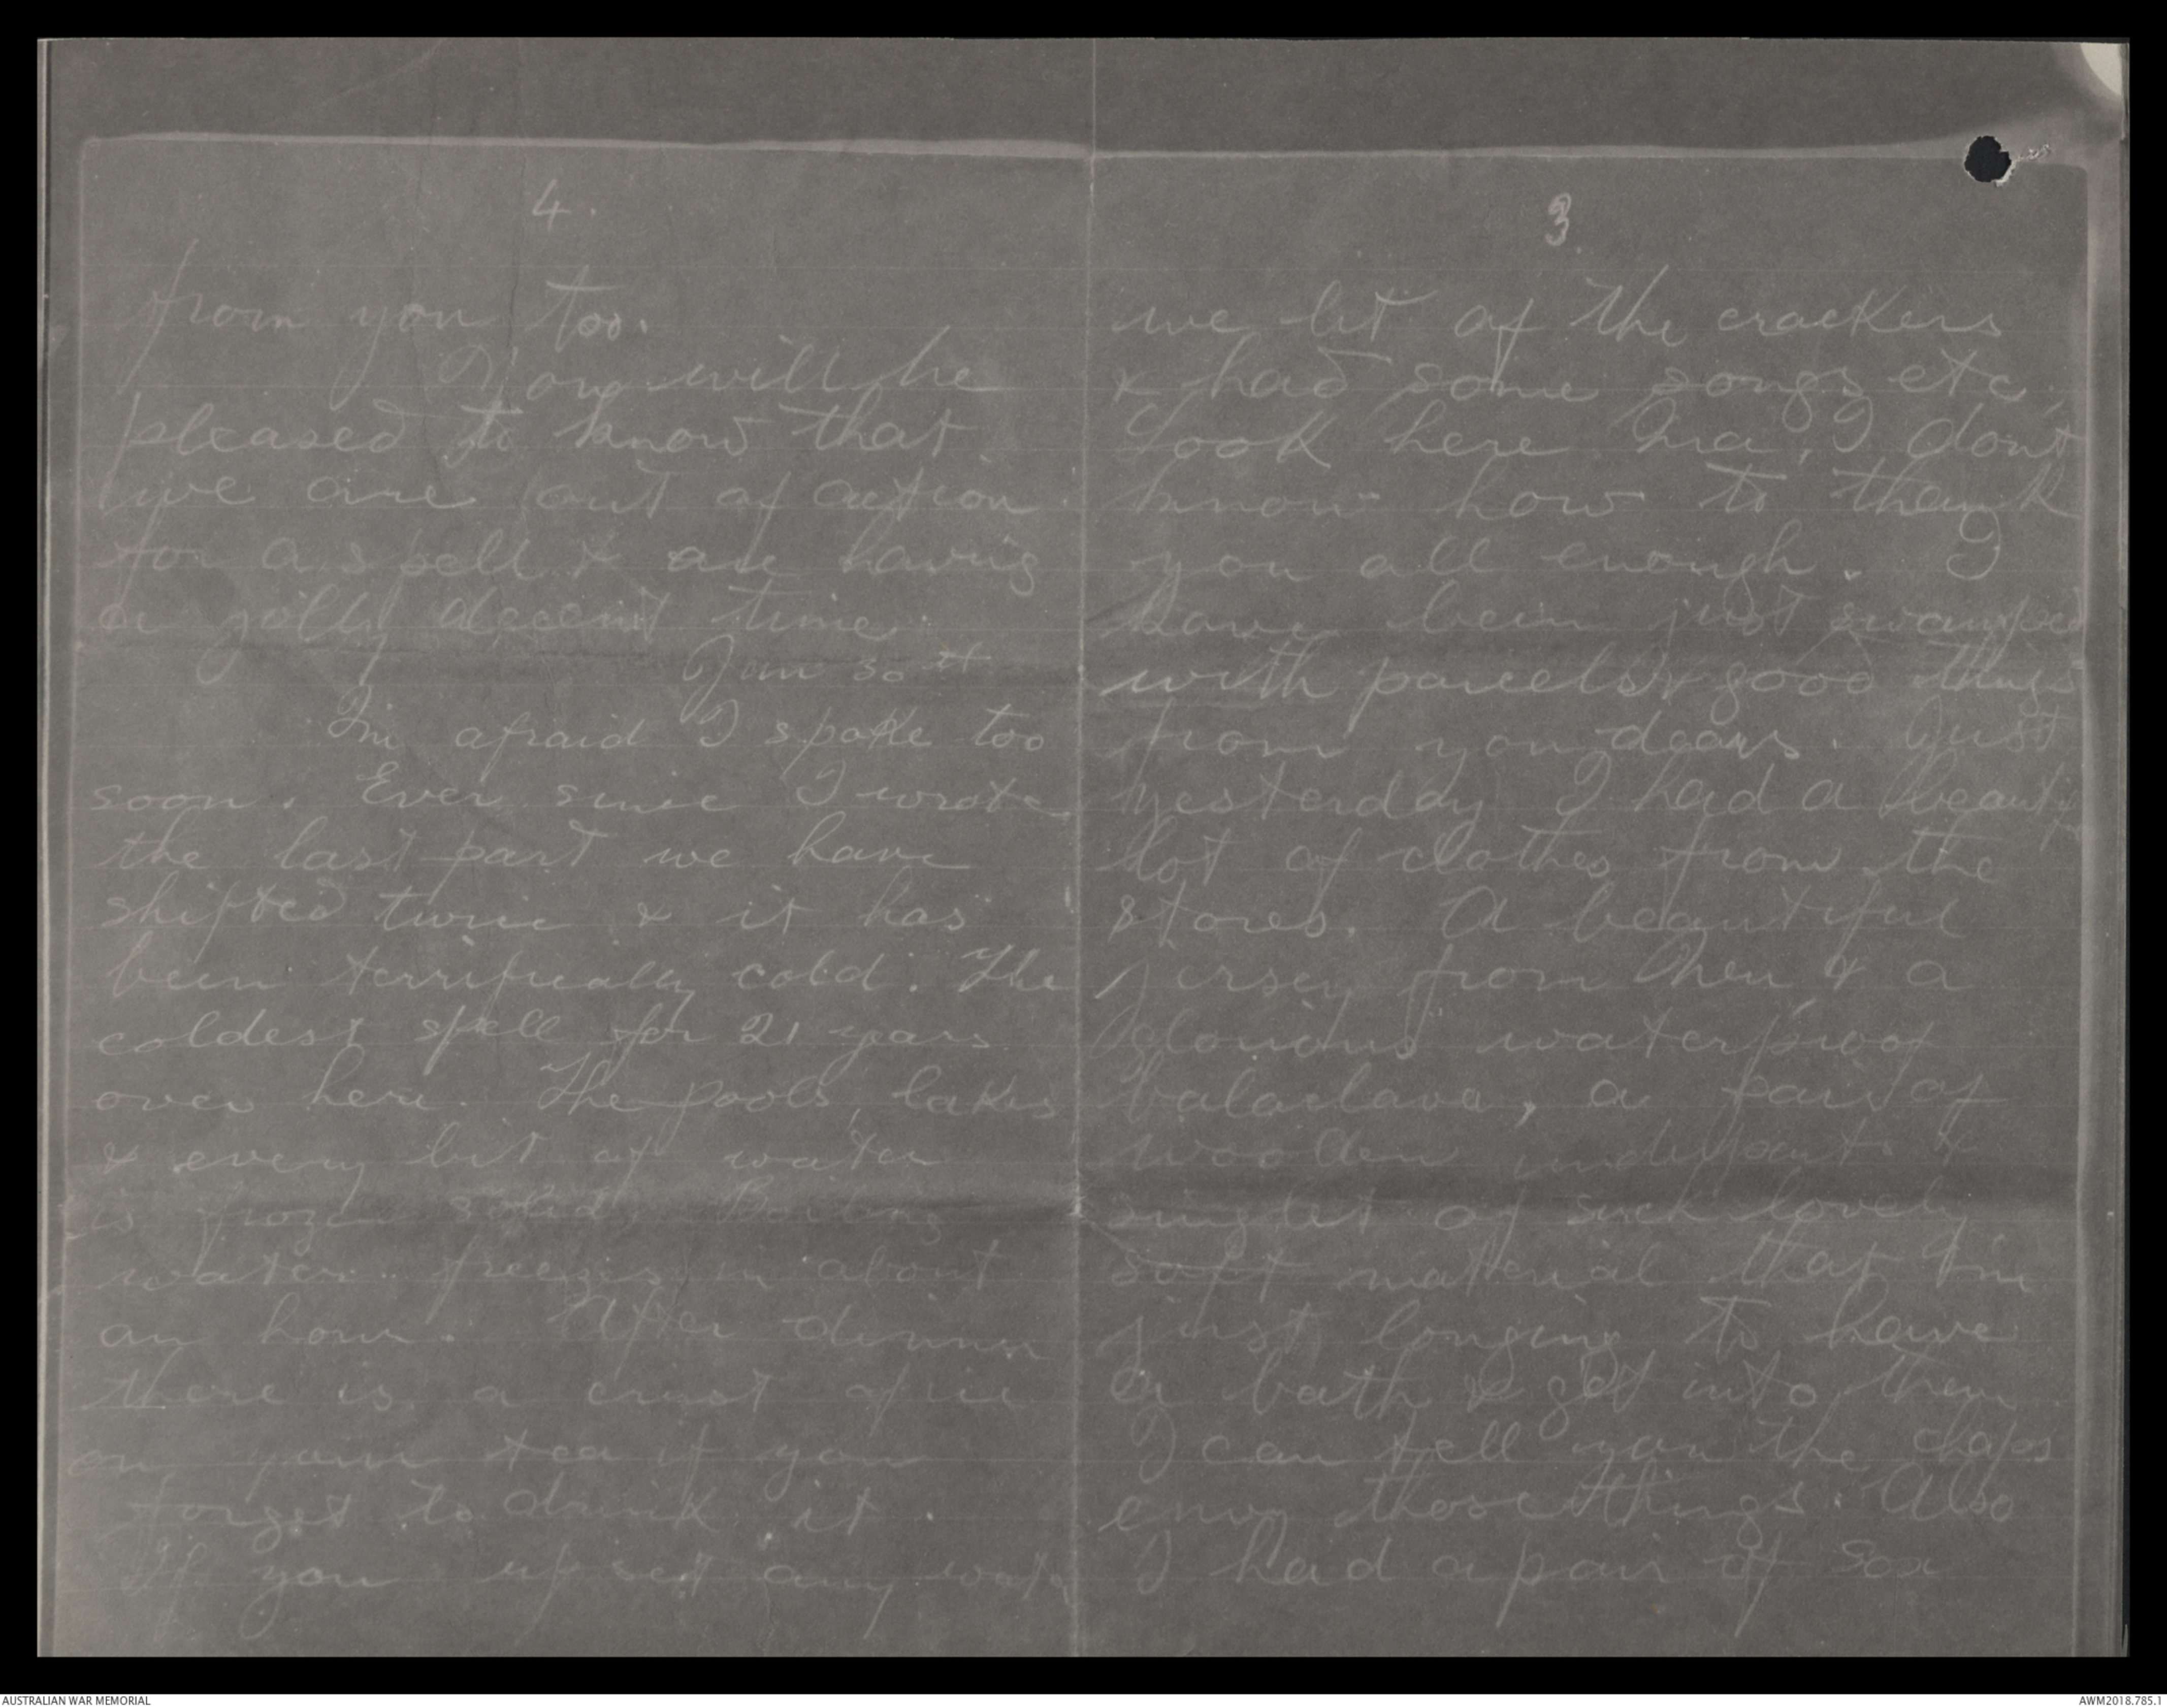 4.
from you too.
You will be
pleased to know that
we are out of action
for a spell & are having
a jolly decent time.
Jan 30th
I'm afraid I spoke too
soon. Ever since I wrote
the last part we have
shifted twice & it has
been terrifically cold. The
coldest spell for 21 years
over here. The pools, lakes
& every bit of water
is frozen solid. Boiling
water freezes in about
an hour. After dinner
there is a crust of ice
on your tea if you
forget to drink it.
If you upset any water
3.
we let off the crackers
& had some songs etc.
Look here Ma, I dont
know how to thank
you all enough. I
have been just swamped
with parcels & good things
from you dears. Just
yesterday I had a beautiful
lot of clothes from the
stores. A beautiful
jersey from & a
glorious waterproof
balaclava, a pair of
woollen underpants &
singlet of such lovely
soft material that I'm
just longing to have
a bath & get into them
I can tell you the chaps
envy those things. Also
I had a pair of sox
AUSTRALIAN WAR MEMORIAL
AWM2018.785.1